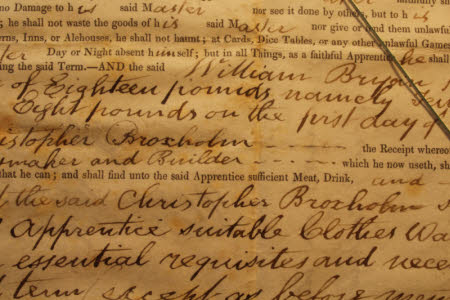 no Damage to his said Master nor see it done by others, but to his
; he shall not waste the goods of his said Master nor give or lend them unlawful
erns, Inns, or Alehouses, he shall not haunt; at Cards, Dice Tables, or any other unlawful Games
Day or Night absent himself; but in all Things, as a faithful Apprentice he shall
ing the said Term.—AND the said William
of Eighteen pounds namely
Eight pounds on the first day of
istopher Broxholm the Receipt whereo
maker and Builder which he now useth, sh
that he can; and shall find unto the said Apprentice sufficient Meat, Drink, and
the said Christopher Broxholm
Apprentice suitable Clothes Wa
essential requisites and nece
term except as before